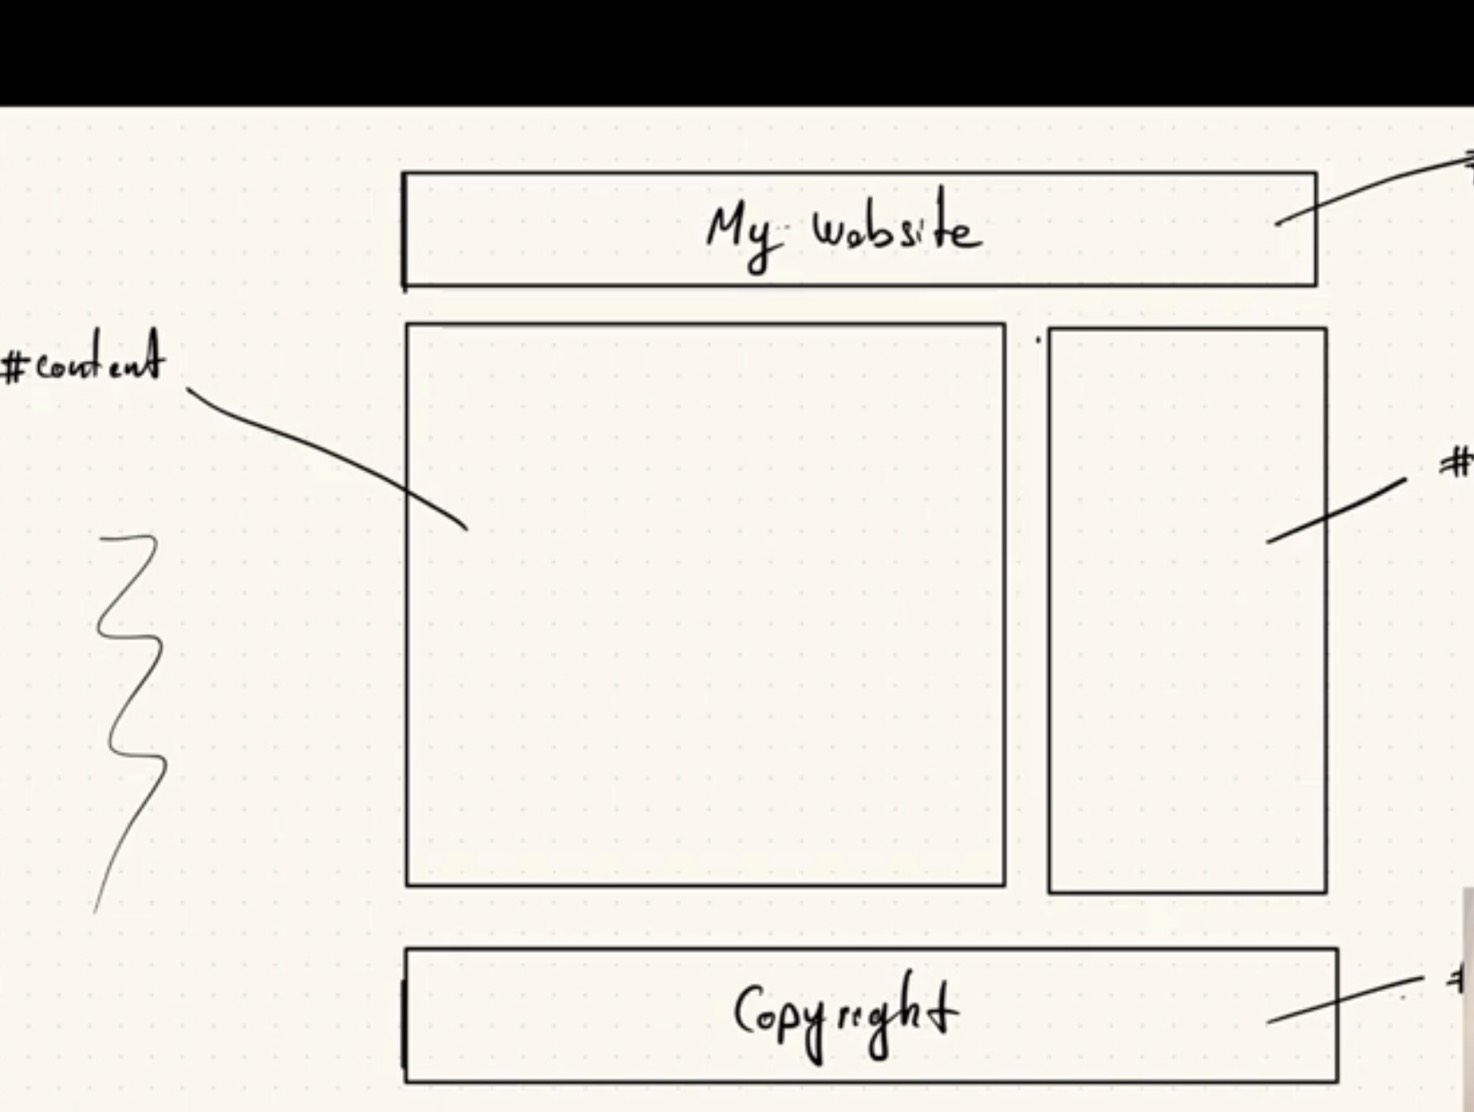 My website
#content
#
Copyright